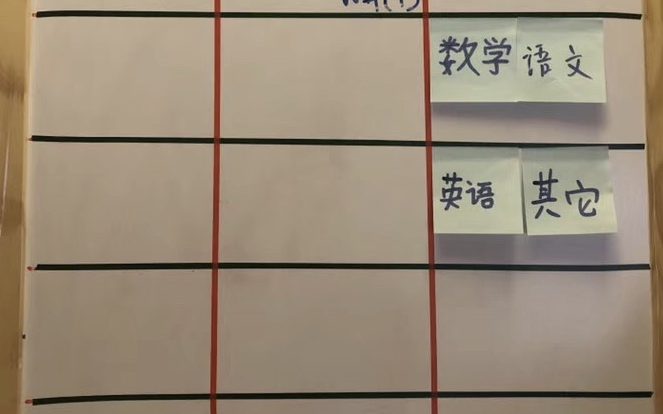 数学 语文
英语 其它